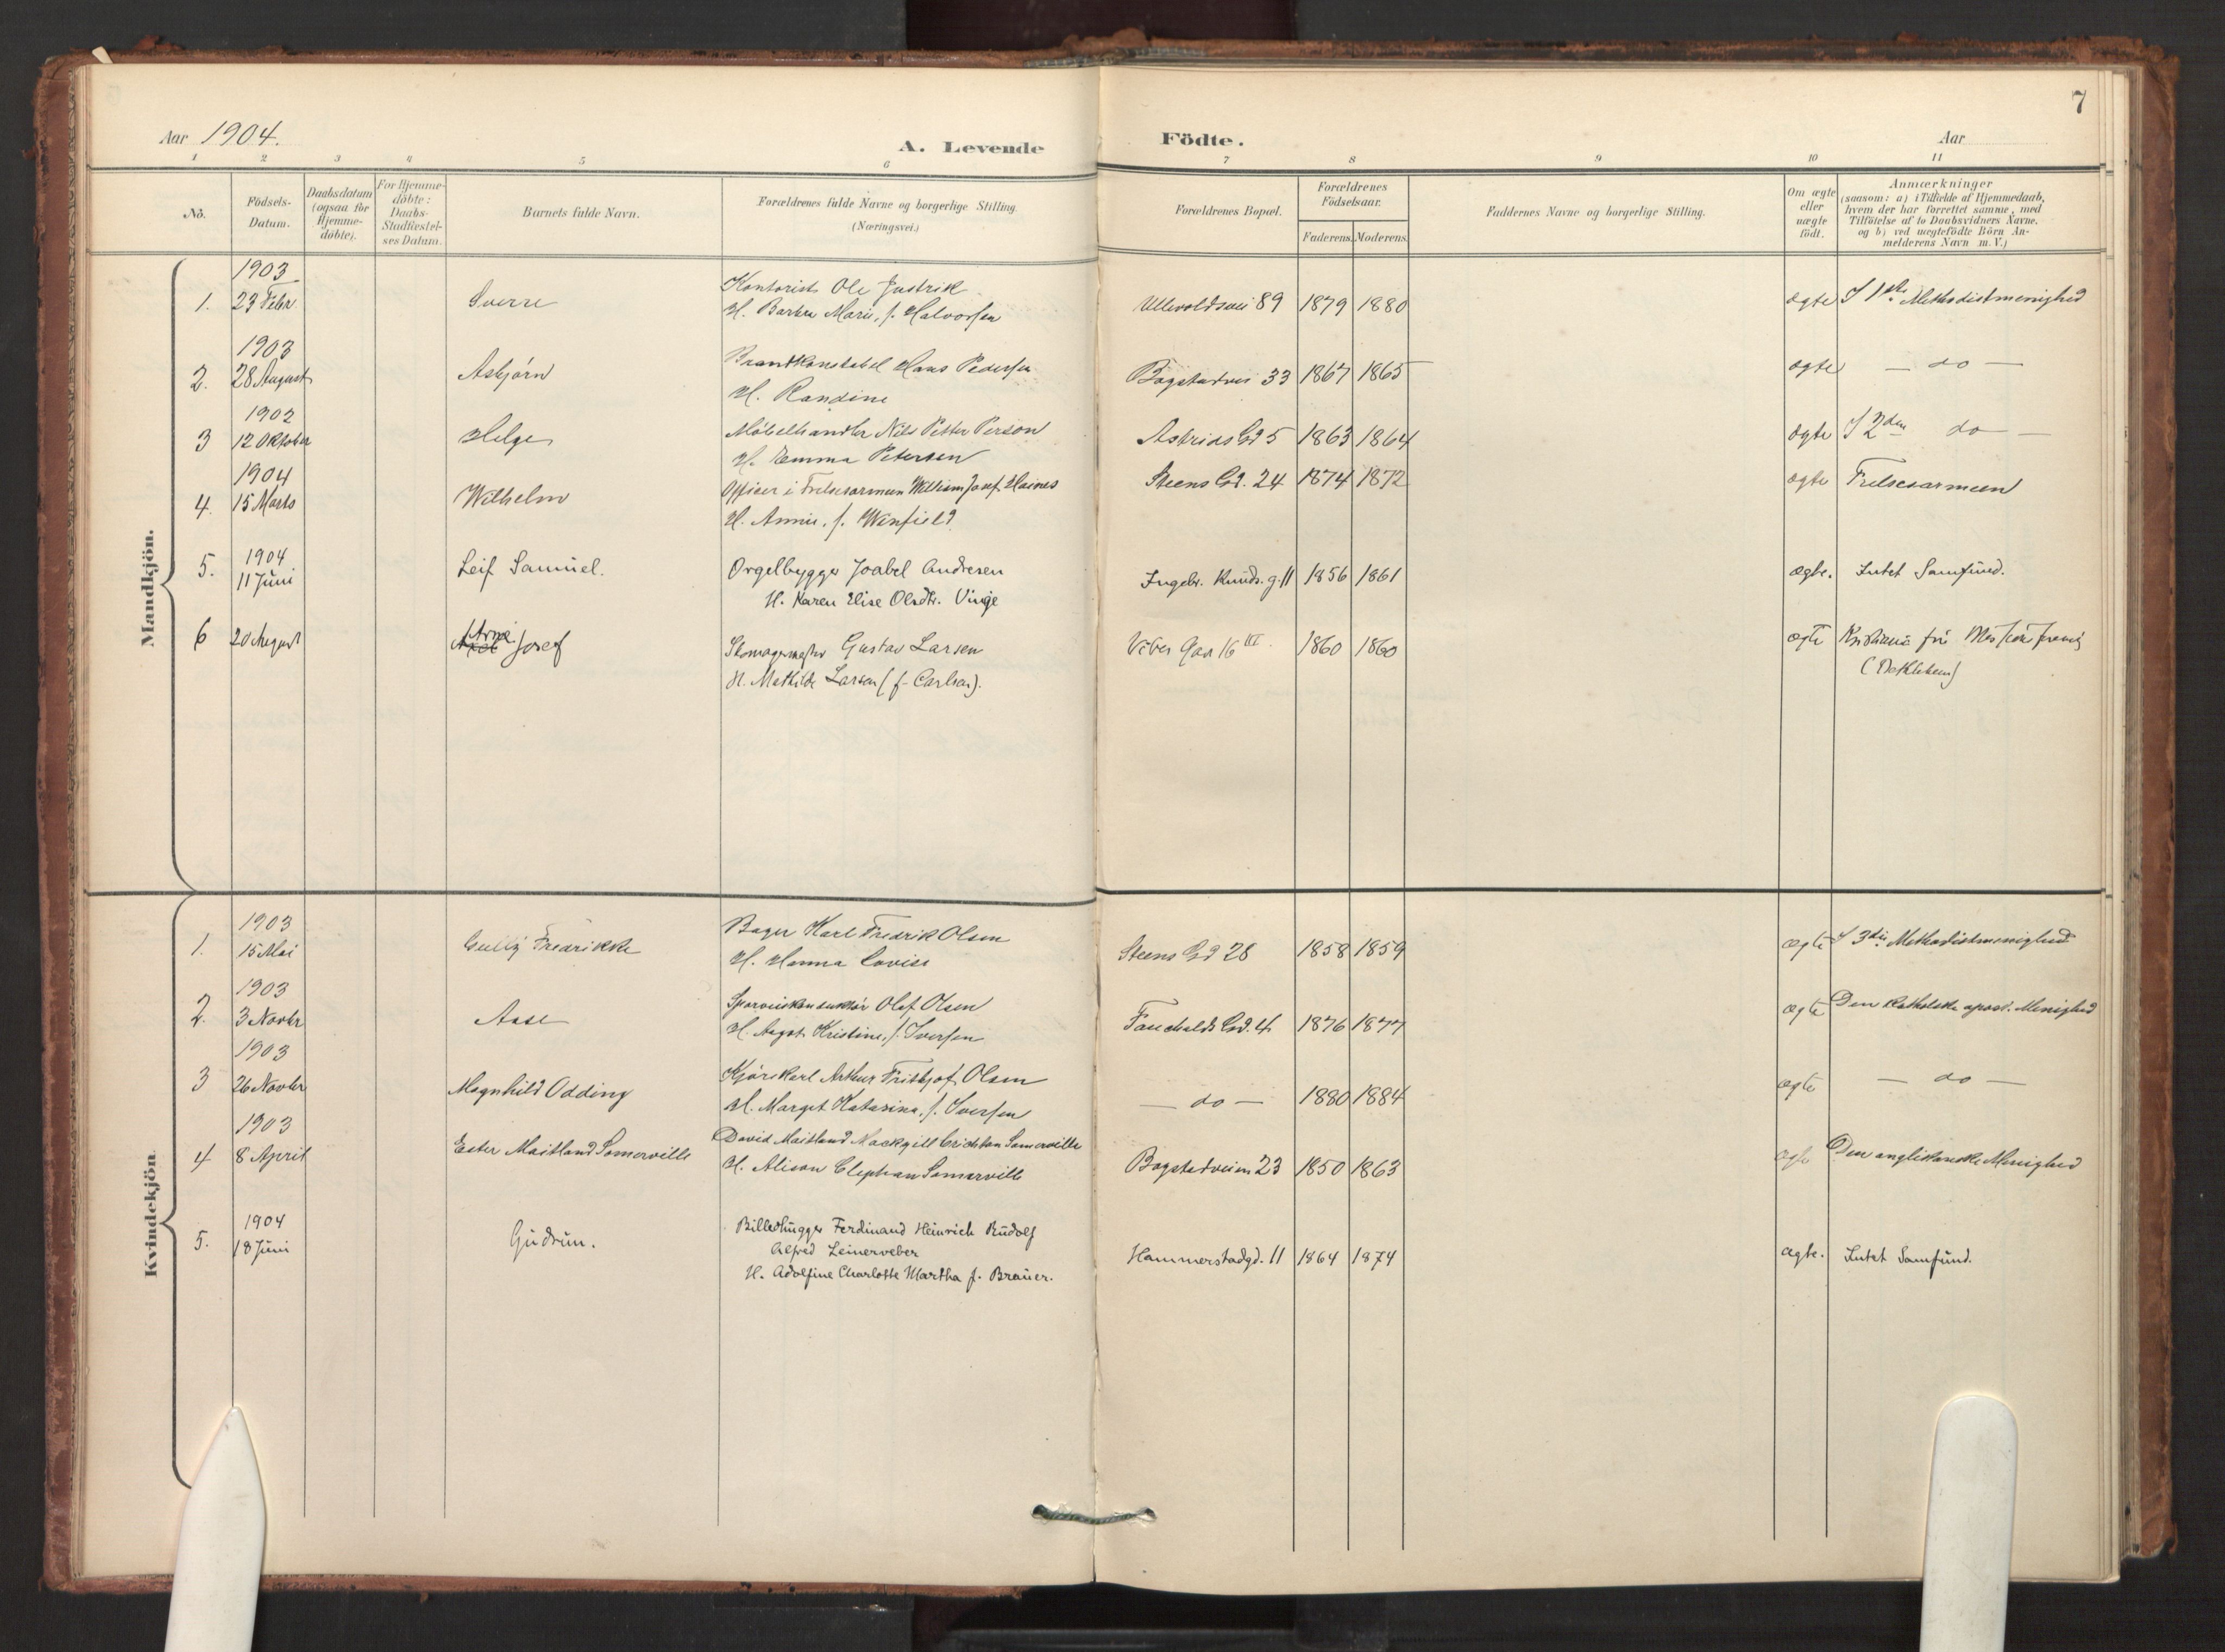 7
Aar 1904.
A. Levende
Födte.
Aar
1 2 3 4 5 6 7 8 9 10 11
No.
Födsels-
Datum.
Daabsdatum
(ogsaa for
Hjemme-
döbte).
For Hjemme-
döbte:
Daabs-
Stadfæstel-
ses Datum.
Barnets fulde Navn.
Forældrenes fulde Navne og borgerlige Stilling.
(Næringsvei.)
Forældrenes Bopæl.
Forældrenes
Födselsaar.
Faderens. Moderens.
Faddernes Navne og borgerlige Stilling.
Om ægte
eller
uægte
födt.
Anmærkninger
(saasom: a) i Tilfælde af Hjemmedaab,
hvem der har forrettet samme, med
Tilföielse af to Daabsvidners Navne.
og b) ved uægtefödte Börn An-
melderens Navn m. V.)
Mandkjön.
1903
1. 23 Febr. Sverre Kontorist Ole Justrik Ullevoldsvei 89 1879 1880 ægte I 1ste Methodistmenighed
H. Barbra Marie, f. Halvorsen
1903
2. 28 August Asbjørn Brandkonstabel Hans Pedersen Bogstadvei 33 1867 1865 ægte — do —
H. Randine
1902
3 12 Oktober Helge Møbelhandler Nils Petter Person Astrids Gd 5 1863 1864 ægte I 2den do —
H. Emma Petersen
1904
4. 15 Marts Wilhelm Officer i Frelsesarmeen William Josef Haines Steens Gd. 24 1874 1872 ægte Frelsesarmeen
H. Annie, f. Winfield
1904
5. 11 Juni Leif Samuel. Orgelbygger Joabel Andresen Ingebr. Knuds. g 11 1856 1861 ægte. Intet Samfund.
H. Karen Elise Olsdtr. Vinge
6 20 August Axel Arne Josef Skomagermester Gustav Larsen Vibes Gade 16 III. 1860 1860 ægte Kristiania fri
H. Mathilde Larsen (f. Carlsen).
(Bethlehem)
Kvindekjön.
1903
1. 15 Mai Gully Fredrikke Bager Karl Fredrik Olsen Steens Gd 28 1858 1859 ægte I 3die Methodistmenighed
H. Hanna Lovise
1903
2. 3 Novbr Aase Sporveiskonduktør Olaf Olsen Fauchalds Gd. 4 1876 1877 ægte Den katholske apost. Menighed
H. Augst. Kristine, f. Iversen
1903
3 26 Novbr Magnhild Odding Kjørekarl Arthur Fritjof Olsen — do — 1880 1884 ægte — do —
H. Marget Katarina, f. Iversen
1903
4 8 April Ester Maitland Somerville David Maitland Mackgill Crichton Somerville Bogstadveien 23 1850 1863 ægte Den anglikanske Menighed
H. Alison Clephan Somerville
1904
5. 18 Juni Gudrun. Billedhugger Ferdinand Heinrich Rudolf
Alfred Leinerveber Hammerstadgd. 11 1864 1874 ægte. Intet Samfund.
H. Adolfine Charlotte Martha f. Brauer.